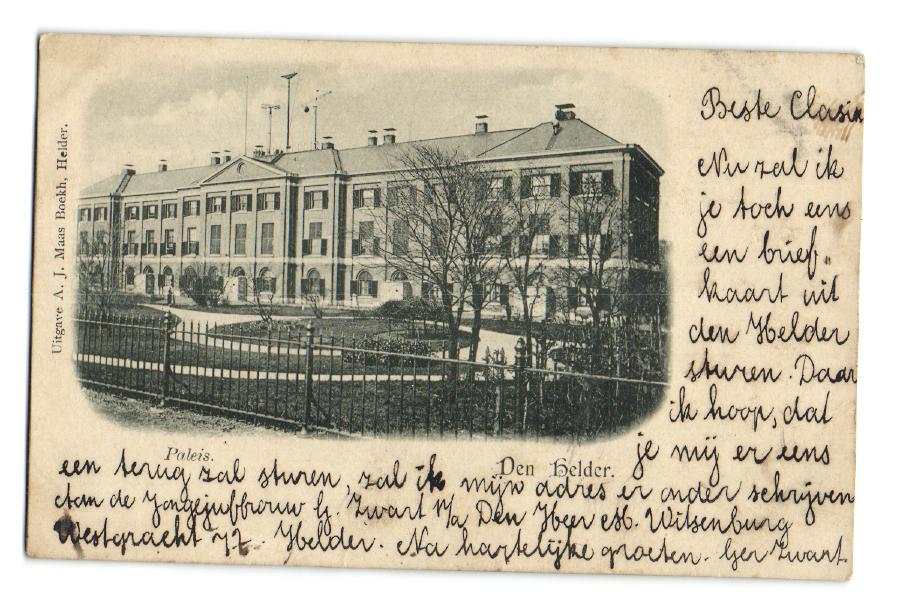 Uitgave A. J. Maas Boekh. Helder.
Paleis.
Den Helder.
Beste Clasin
Nu zal ik
je toch eens
een brief„
kaart uit
den Helder
sturen. Daar
ik hoop, dat
je mij er eens
een terug zal sturen, zal ik mijn adres er onder schrijven
Aan de Jongejuffrouw G. Zwart p/a Den Heer M. Witsenburg
Westgracht 77. Helder. Na hartelijke groeten. Ger Zwart.